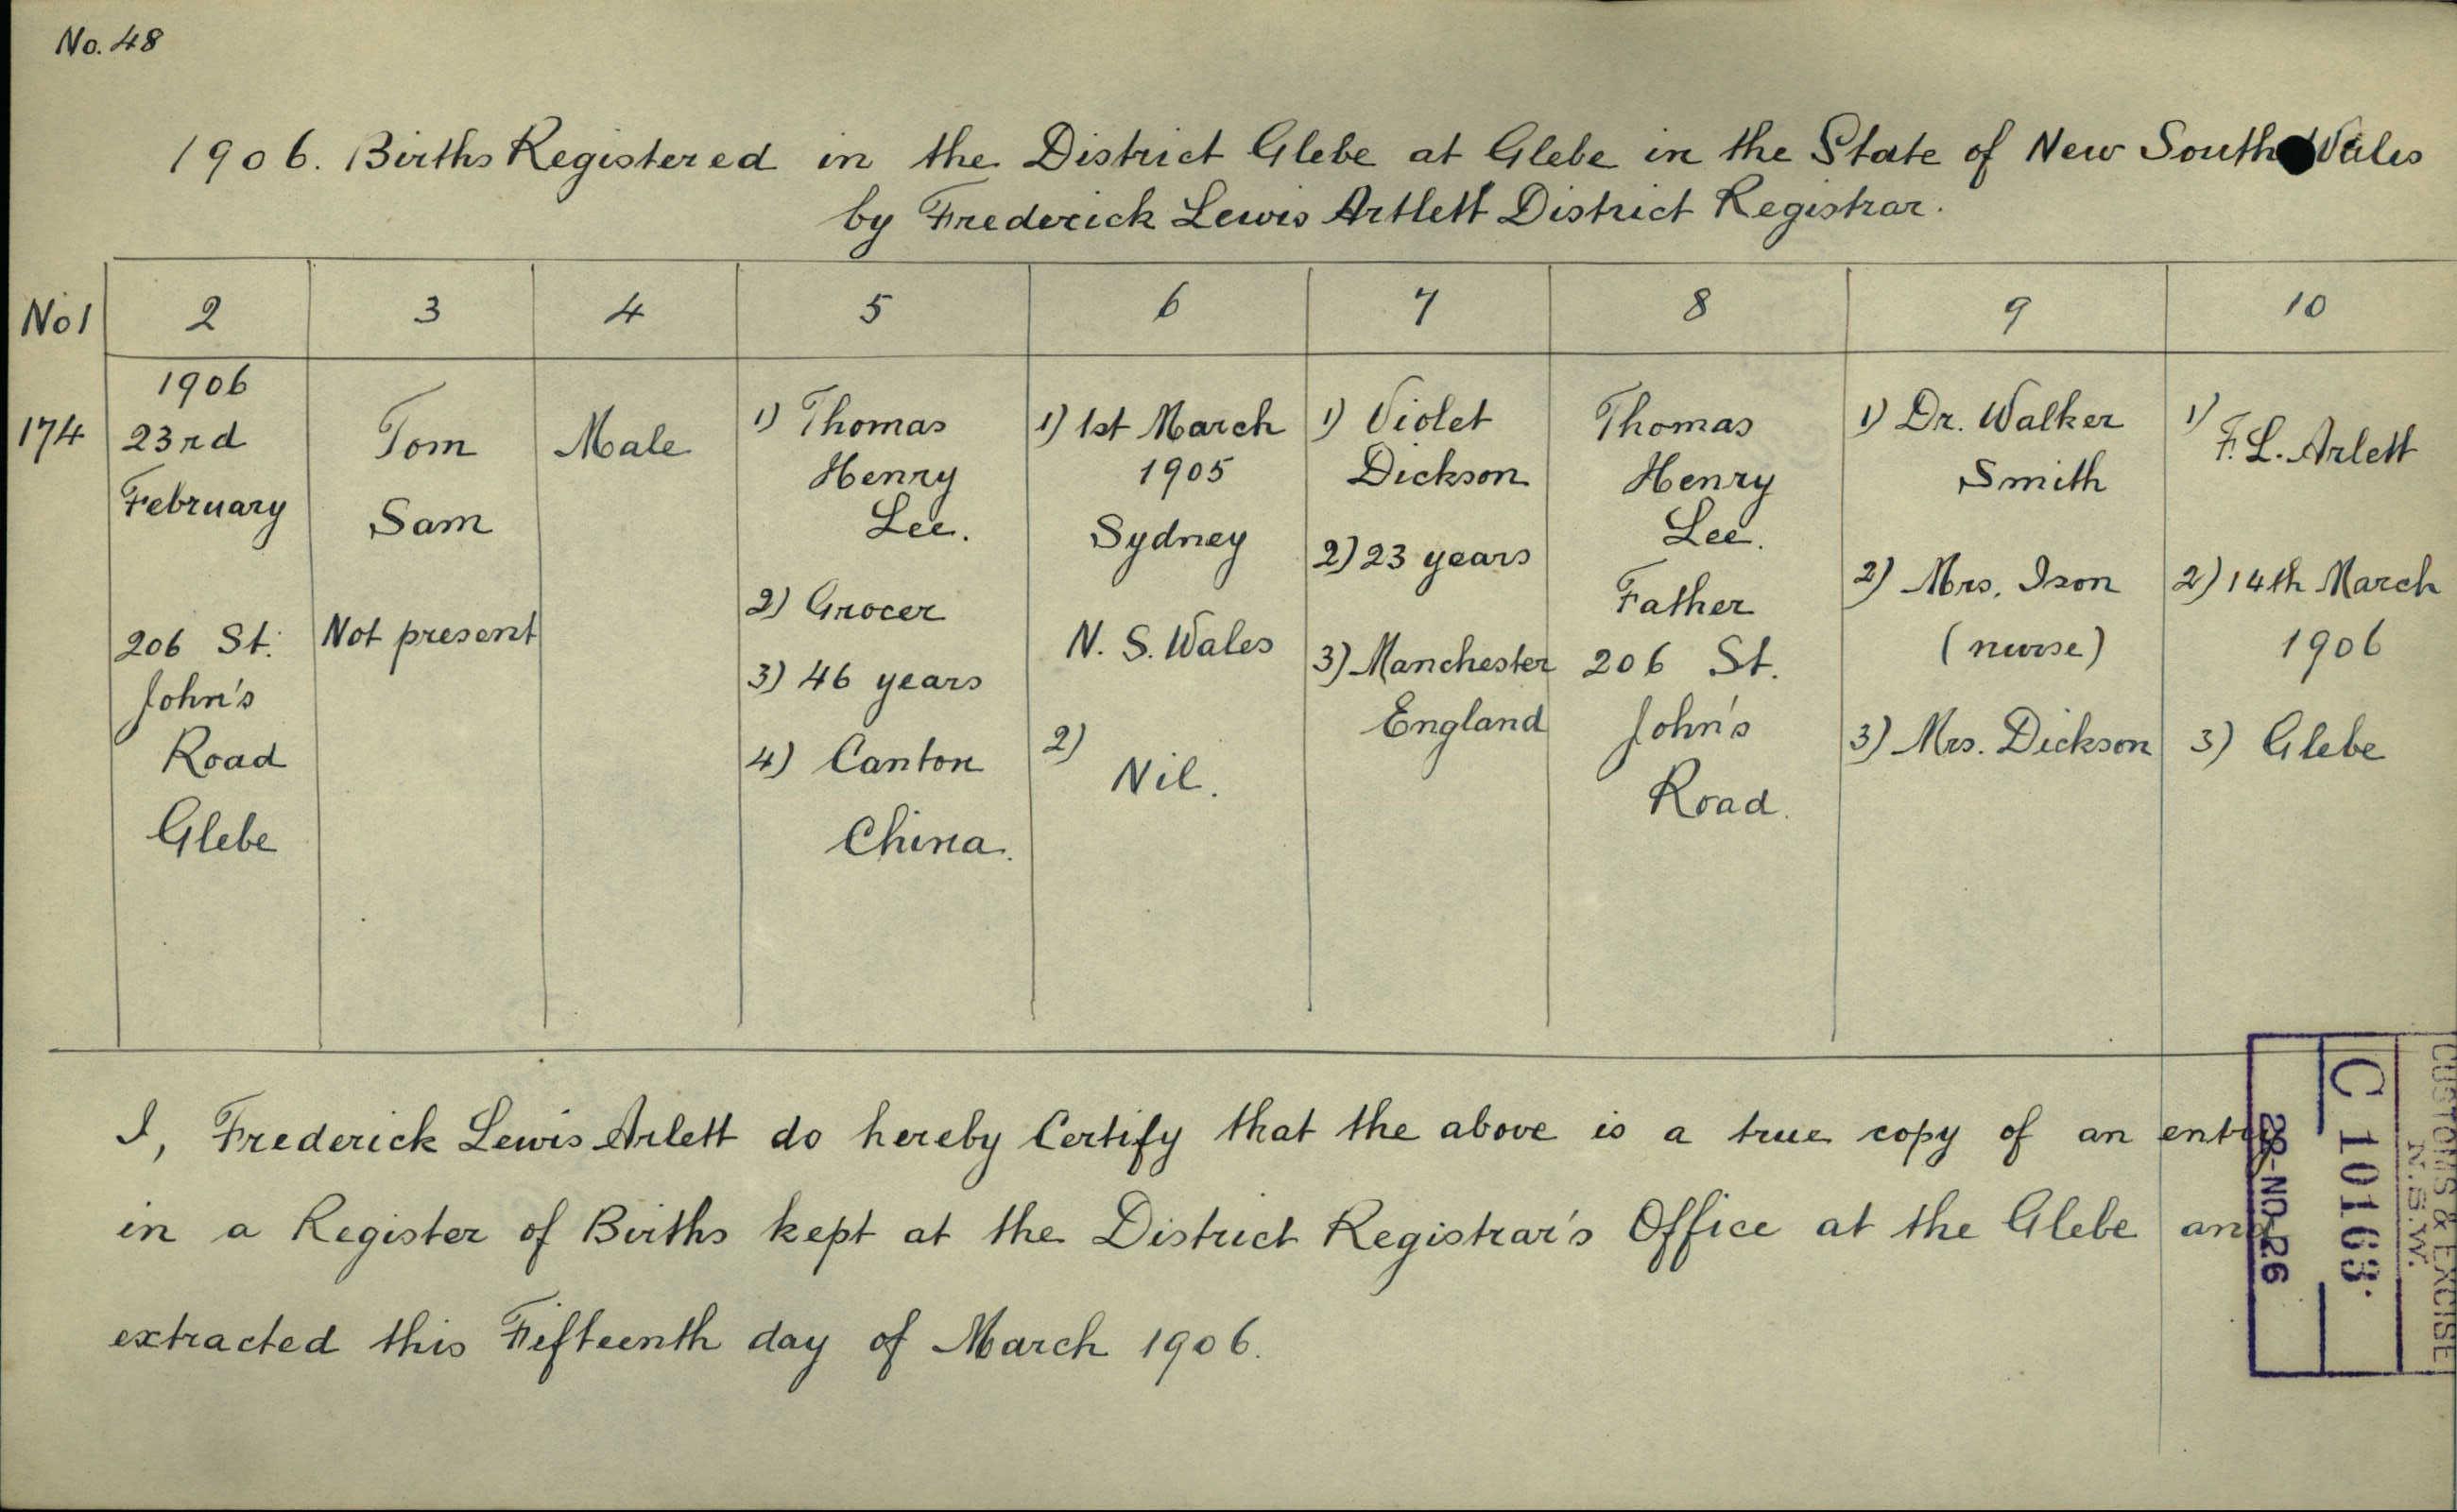 No. 48
1906. Births Registered in the District Glebe at Glebe in the State of New South Wales
by Frederick Lewis Artlett District Registrar.
No 1 2 3 4 5 6 7 8 9 10
174
1906
23rd
February
206 St.
John's
Road
Glebe
Tom
Sam
Not present
Male
1) Thomas
Henry
Lee.
2) Grocer
3) 46 years
4) Canton
China.
1) 1st March
1905
Sydney
N. S. Wales
2)
Nil.
1) Violet
Dickson
2) 23 years
3) Manchester
England
Thomas
Henry
Lee.
Father
206 St.
John's
Road.
1) Dr. Walker
Smith
2) Mrs. Ison
(nurse)
3) Mrs. Dickson
1)
F. L. Arlett
2) 14th March
1906
3) Glebe
I, Frederick Lewis Arlett do hereby Certify that the above is a true copy of an entry
in a Register of Births kept at the District Registrar's Office at the Glebe and
extracted this Fifteenth day of March 1906.
CUSTOMS & EXCISE
N.S.W.
C 10163.
22-NO 26